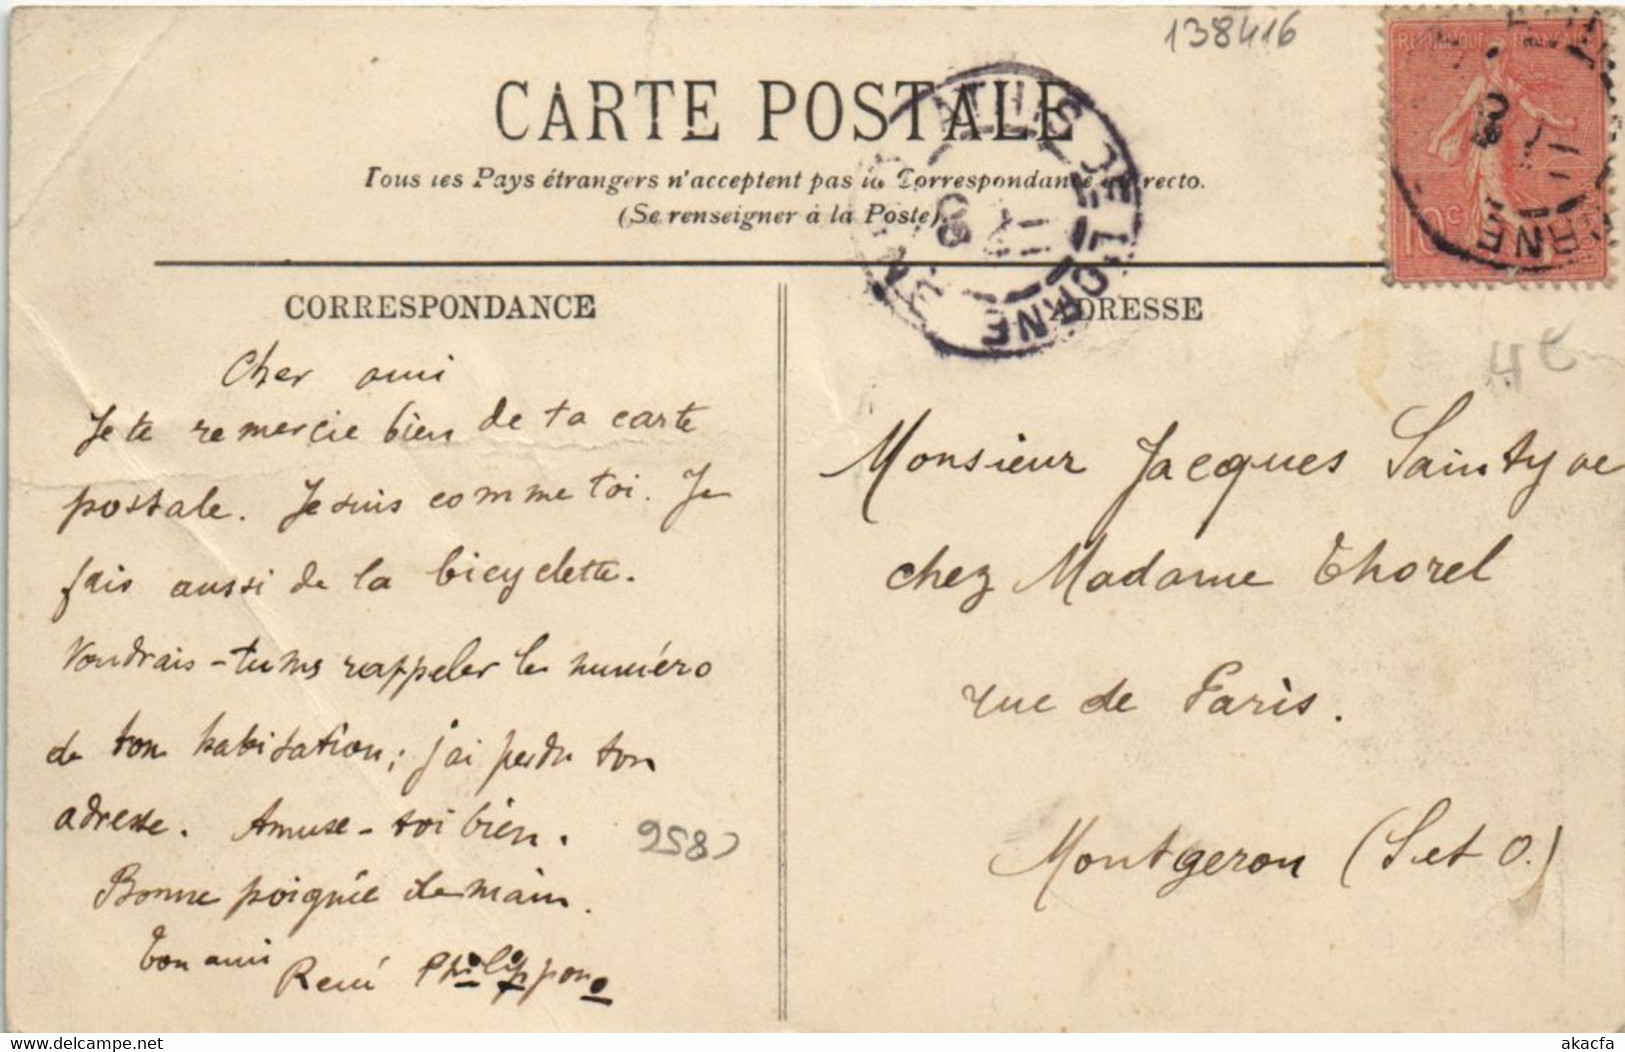 138416
CARTE POSTALE
Tous les Pays étrangers n'acceptent pas la Correspondance au recto.
(Se renseigner à la Poste).
REPUBLIQUE FRANÇAISE
10c
ORNE
CORRESPONDANCE
ADRESSE
4€
Cher ami
Je te remercie bien de ta carte
postale. Je suis comme toi. Je
fais aussi de la bicyclette.
Voudrais-tu me rappeler le numéro
de ton habitation; j'ai perdu ton
adresse. Amuse-toi bien.
Bonne poignée de main.
Ton ami
René Philippon
Monsieur Jacques Saintyve
chez Madame Thorel
rue de Paris.
Montgeron (S et O.)
delcampe.net
akacfa